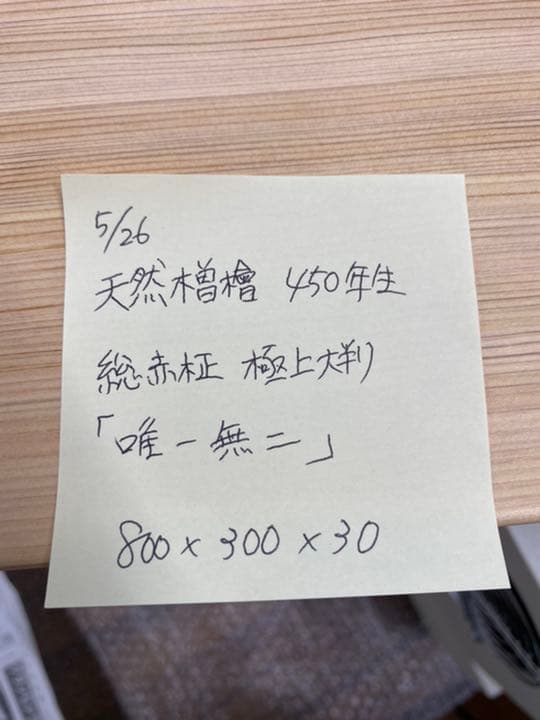 5/26
天然木曽檜 450年生
総赤柾 極上大判
「唯一無二」
800×300×30